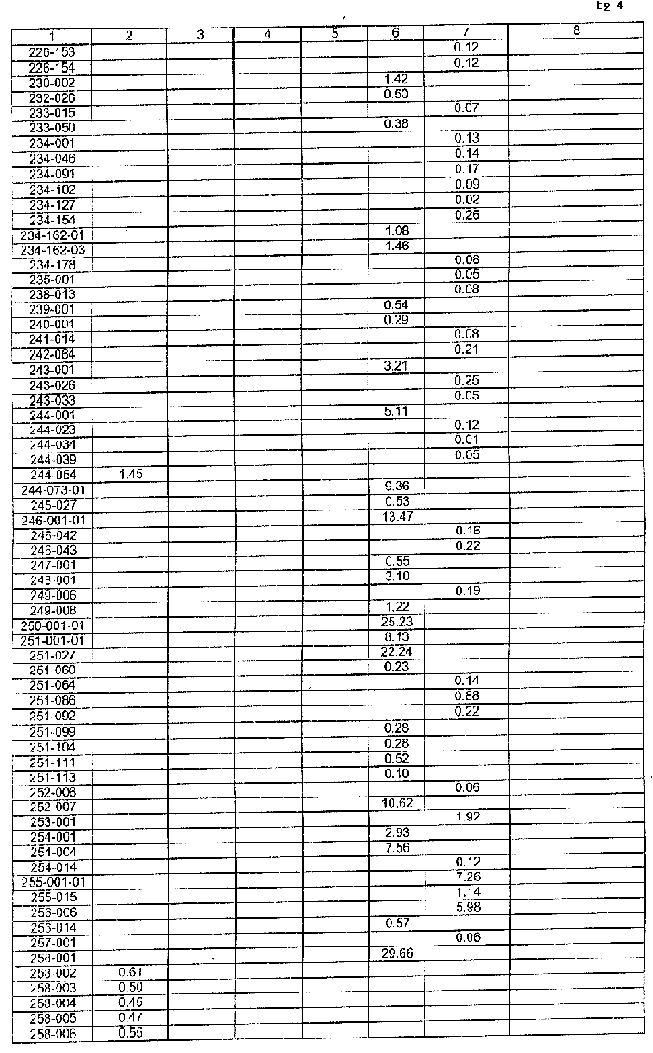 Eg 4
1 2 3 4 5 6 7 8
226-153 0.12
226-154 0.12
230-002 1.42
232-026
233-015 0.07
233-050 0.38
234-001 0.13
234-046 0.14
234-091 0.17
234-102 0.09
234-127 0.02
234-154 0.26
234-162-01 1.08
234-162-03 1.46
234-178 0.06
235-001 0.05
238-013 0.08
239-001 0.54
240-001 0.29
241-014 0.08
242-084 0.21
243-001 3.21
243-026 0.25
243-033 0.05
244-001 5.11
244-023 0.12
244-031 0.01
244-039 0.05
244-064 1.45
244-073-01 0.36
245-027 0.53
246-001-01 13.47
246-042 0.18
246-043 0.22
247-001 0.55
248-001 3.10
249-006 0.19
249-008 1.22
250-001-01 25.23
251-001-01 8.13
251-027 22.24
251-060 0.23
251-064 0.14
251-086 0.88
251-092 0.22
251-099 0.28
251-104 0.28
251-111 0.52
251-113 0.10
252-006 0.06
252-007 10.62
253-001 1.92
254-001 2.93
254-004 7.56
254-014 0.12
255-001-01 7.26
255-015 1.14
256-006 5.98
256-014 0.57
257-001 0.06
258-001 29.66
258-002 0.61
258-003 0.50
258-004 0.46
258-005 0.47
258-006 0.55